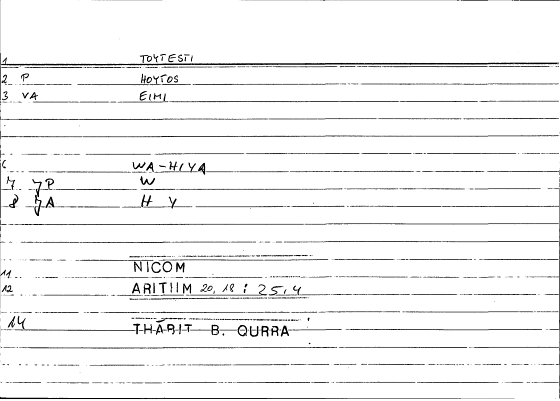 1 TOYTESTI
2 P HOYTOS
3 VA EIMI
6 WA-HIYA
7 JP W
8 JA H Y
11 NICOM
12 ARITHM 20, 18 : 25,4
14 THĀBIT B. QURRA